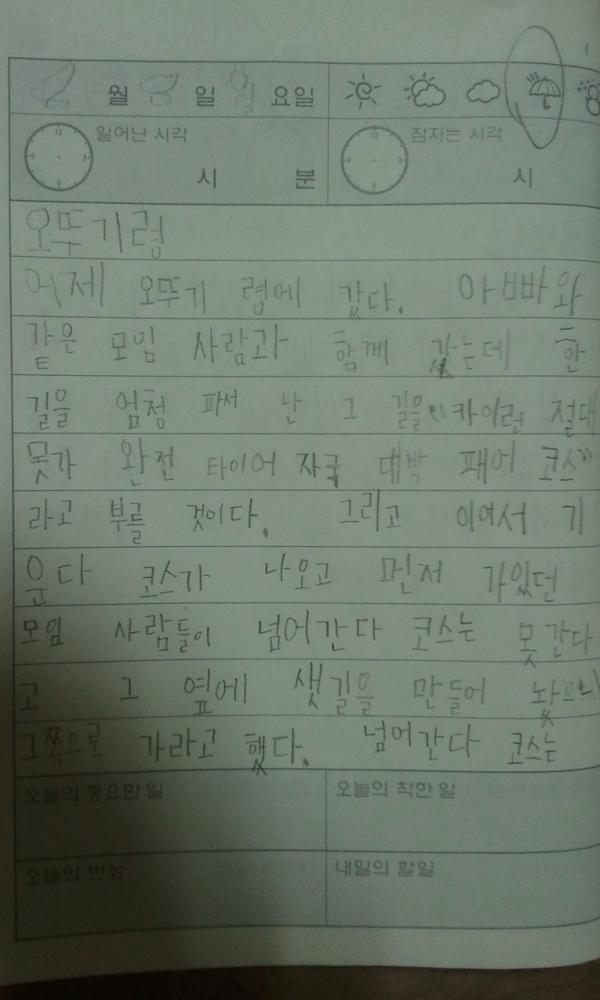 월 일 월 요일
일어난 시각 잠자는 시각
시 분 시
오뚜기령
어제 오뚜기 령에 갔다. 아빠와
같은 모임 사람과 함께 갔는데 한
길을 엄청 파서 난 그 길을 카이런 절대
못가 완전 타이어 자국 대박 패여 코스
라고 부를 것이다. 그리고 이여서 기
운다 코스가 나오고 먼저 가있던
모임 사람들이 넘어간다 코스는 못간다
고 그 옆에 샛길을 만들어 놨으니
그쪽으로 가라고 했다. 넘어간다 코스는
오늘의 중요한 일 오늘의 착한 일
오늘의 반성 내일의 할일